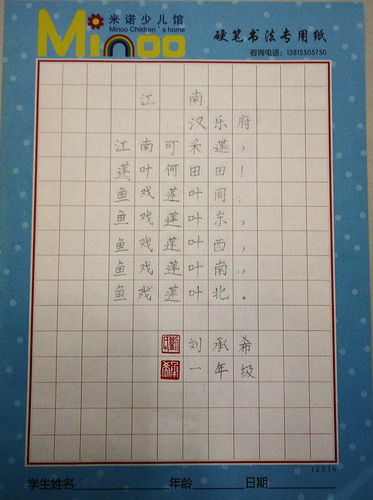 米诺少儿馆
Minoo Children's home
Minoo
硬笔书法专用纸
咨询电话：13812505750
江南
汉乐府
江南可采莲，
莲叶何田田！
鱼戏莲叶间：
鱼戏莲叶东，
鱼戏莲叶西，
鱼戏莲叶南，
鱼戏莲叶北。
刘承希
一年级
12X16
学生姓名 年龄 日期